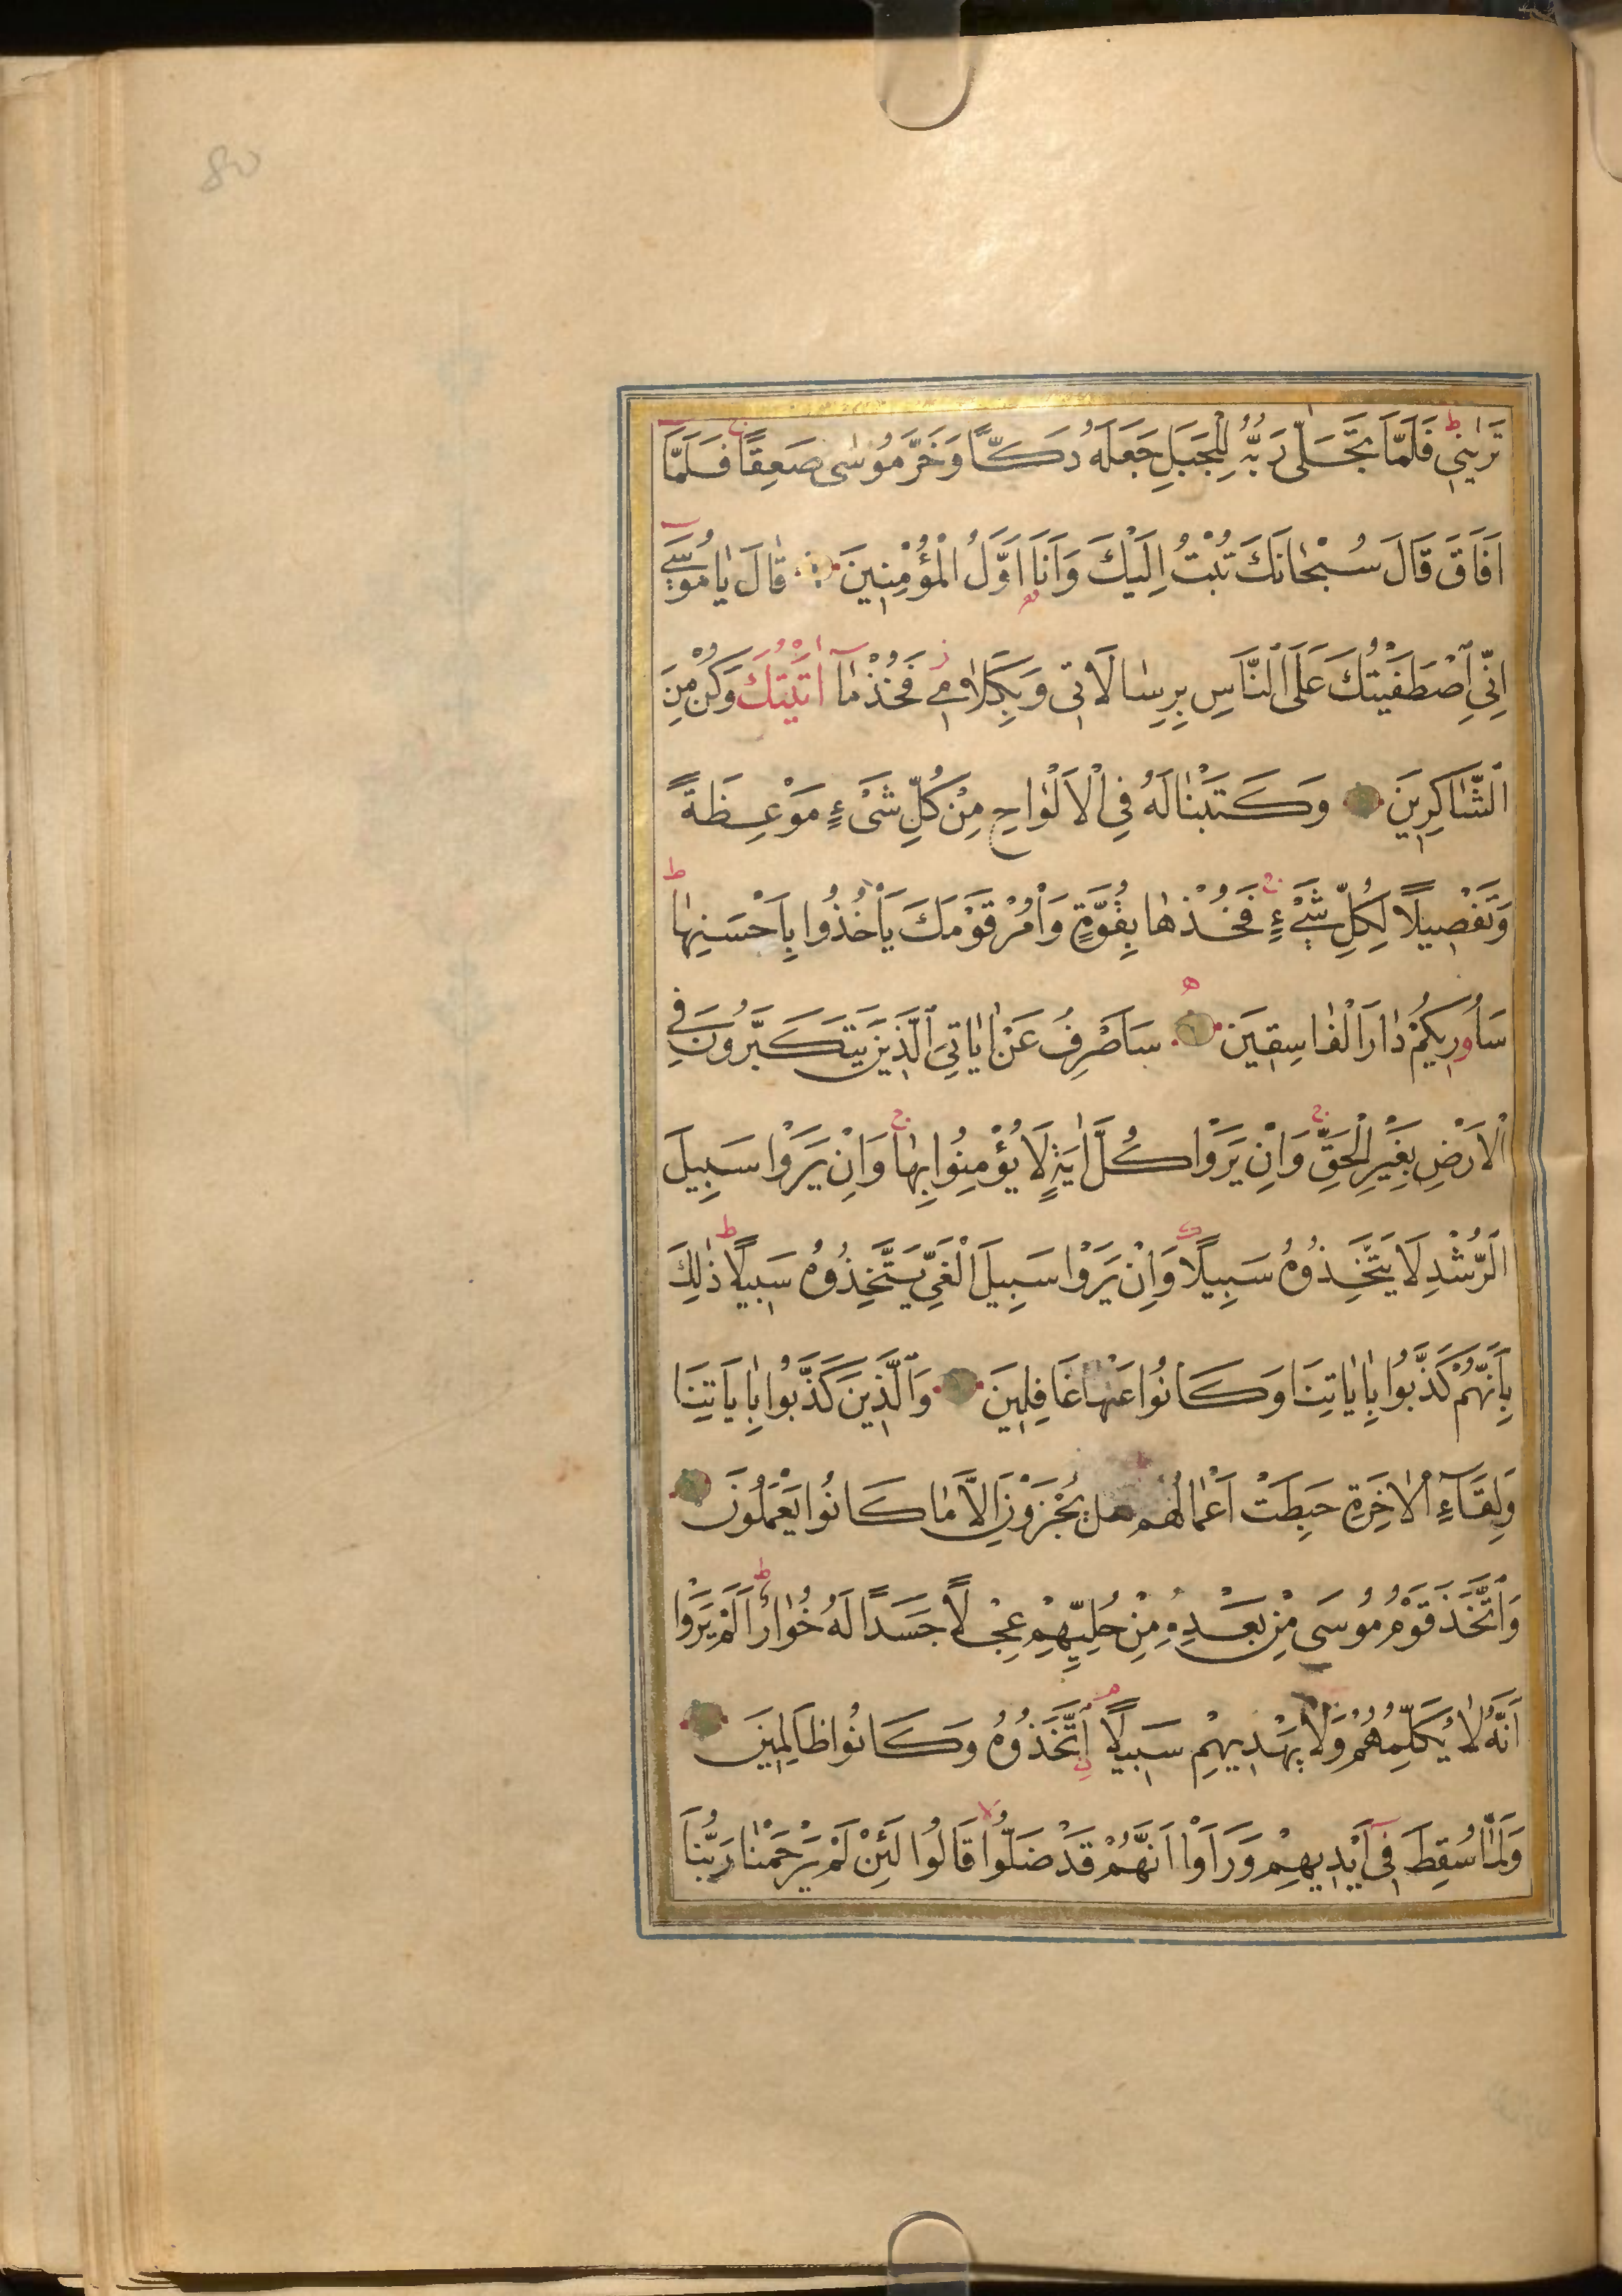 تَرٰينِي فَلَمَّا تَجَلّٰى رَبُّهُ لِلْجَبَلِ جَعَلَهُ دَكًّا وَخَرَّ مُوسٰى صَعِقًا فَلَمَّا
اَفَاقَ قَالَ سُبْحَانَكَ تُبْتُ اِلَيْكَ وَاَنَا اَوَّلُ الْمُؤْمِنِينَ قَالَ يَا مُوسٰى
اِنِّي اصْطَفَيْتُكَ عَلَى النَّاسِ بِرِسَالَاتِي وَبِكَلَامِي فَخُذْ مَا اٰتَيْتُكَ وَكُنْ مِنَ
الشَّاكِرِينَ وَكَتَبْنَا لَهُ فِي الْاَلْوَاحِ مِنْ كُلِّ شَيْءٍ مَوْعِظَةً
وَتَفْصِيلًا لِكُلِّ شَيْءٍ فَخُذْهَا بِقُوَّةٍ وَاْمُرْ قَوْمَكَ يَاْخُذُوا بِاَحْسَنِهَا
سَاُورِيكُمْ دَارَ الْفَاسِقِينَ سَاَصْرِفُ عَنْ اٰيَاتِيَ الَّذِينَ يَتَكَبَّرُونَ فِي
الْاَرْضِ بِغَيْرِ الْحَقِّ وَاِنْ يَرَوْا كُلَّ اٰيَةٍ لَا يُؤْمِنُوا بِهَا وَاِنْ يَرَوْا سَبِيلَ
الرُّشْدِ لَا يَتَّخِذُوهُ سَبِيلًا وَاِنْ يَرَوْا سَبِيلَ الْغَيِّ يَتَّخِذُوهُ سَبِيلًا ذٰلِكَ
بِاَنَّهُمْ كَذَّبُوا بِاٰيَاتِنَا وَكَانُوا عَنْهَا غَافِلِينَ وَالَّذِينَ كَذَّبُوا بِاٰيَاتِنَا
وَلِقَاءِ الْاٰخِرَةِ حَبِطَتْ اَعْمَالُهُمْ هَلْ يُجْزَوْنَ اِلَّا مَا كَانُوا يَعْمَلُونَ
وَاتَّخَذَ قَوْمُ مُوسَى مِنْ بَعْدِهِ مِنْ حُلِيِّهِمْ عِجْلًا جَسَدًا لَهُ خُوَارٌ اَلَمْ يَرَوْا
اَنَّهُ لَا يُكَلِّمُهُمْ وَلَا يَهْدِيهِمْ سَبِيلًا اِتَّخَذُوهُ وَكَانُوا ظَالِمِينَ
وَلَمَّا سُقِطَ فِي اَيْدِيهِمْ وَرَاَوْا اَنَّهُمْ قَدْ ضَلُّوا قَالُوا لَئِنْ لَمْ يَرْحَمْنَا رَبُّنَا